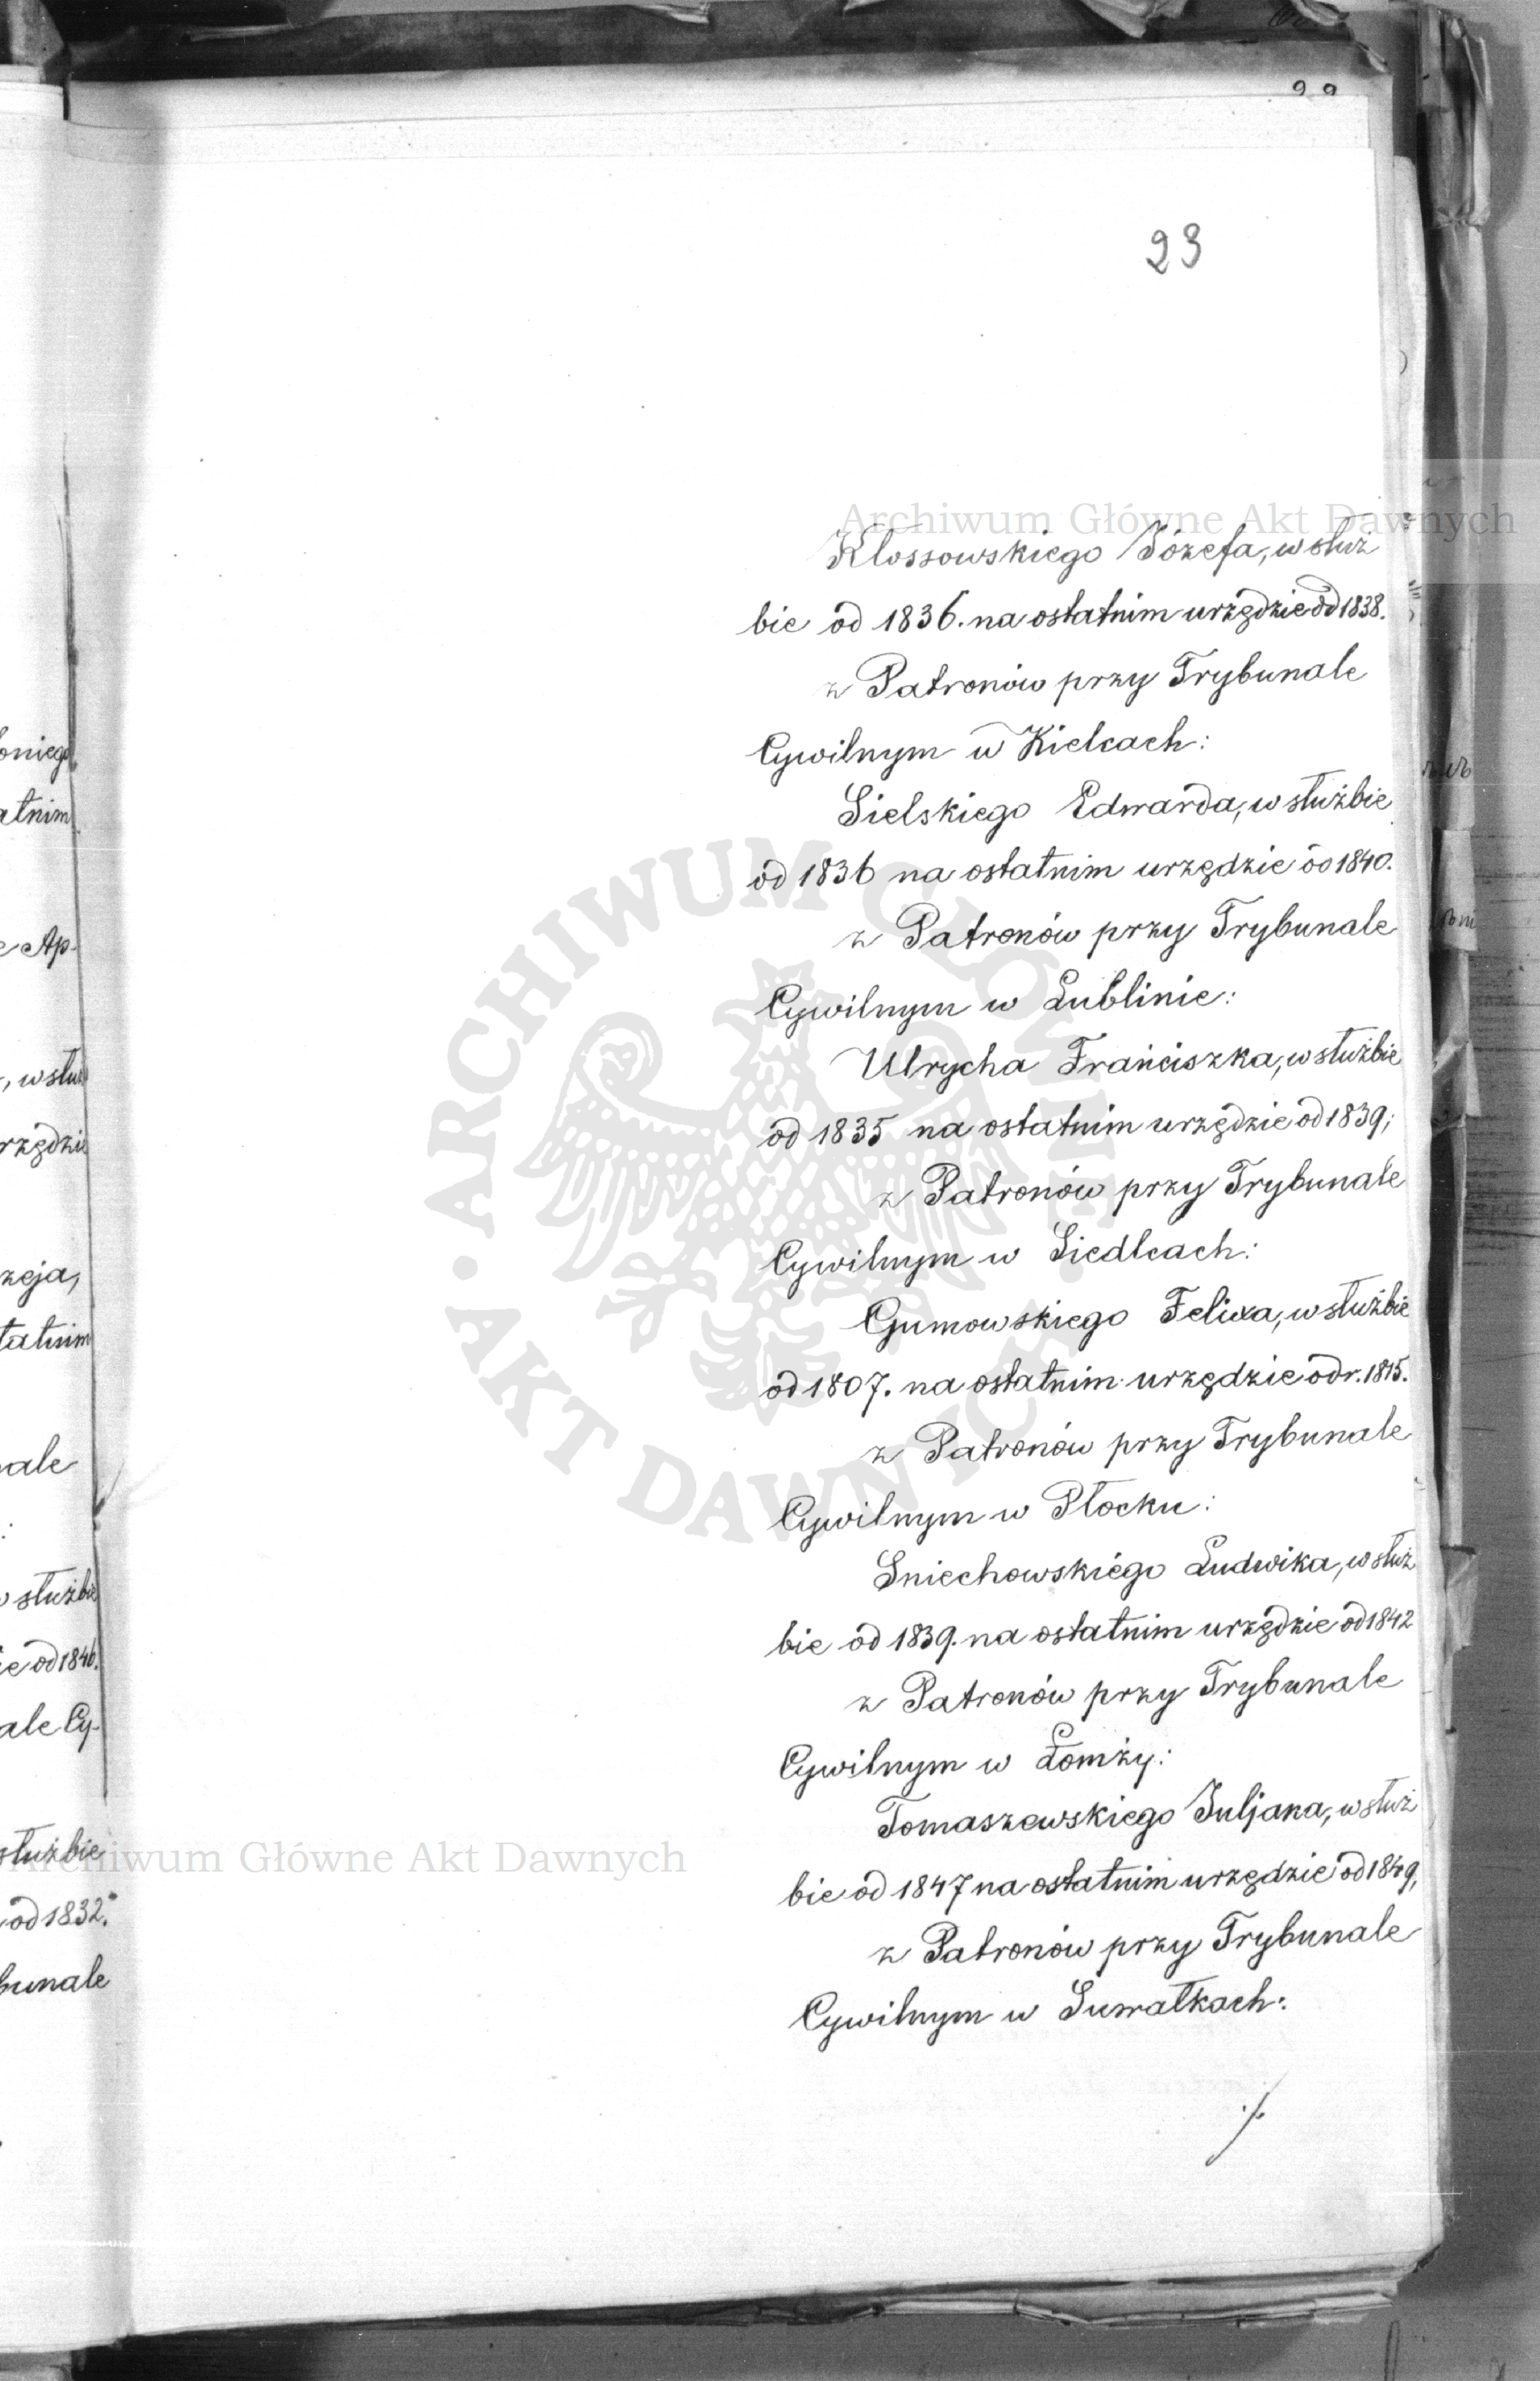 23
Kłossowskiego Józefa, w służ
bie od 1836. na ostatnim urzędzie od 1838.
z Patronów przy Trybunale
Cywilnym w Kielcach:
Sielskiego Edwarda, w służbie
od 1836 na ostatnim urzędzie od 1840.
z Patronów przy Trybunale
Cywilnym w Lublinie:
Ulrycha Franciszka, w służbie
od 1835 na ostatnim urzędzie od 1839;
z Patronów przy Trybunale
Cywilnym w Siedlcach:
Gumowskiego Felixa, w służbie
od 1807. na ostatnim urzędzie od r. 1815.
z Patronów przy Trybunale
Cywilnym w Płocku:
Sniechowskiego Ludwika, w służ
bie od 1839. na ostatnim urzędzie od 1842
z Patronów przy Trybunale
Cywilnym w Łomży:
Tomaszewskiego Juljana, w służ
bie od 1847 na ostatnim urzędzie od 1849,
z Patronów przy Trybunale
Cywilnym w Suwałkach:
./.
atnim
e Ap-
, w słu
zeja,
tatnim
ale
w służbie
ie od 1846.
ale Cy-
służbie
od 1832.
bunale
Archiwum Główne Akt Dawnych
ARCHIWUM GŁÓWNE
AKT DAWNYCH
Archiwum Główne Akt Dawnych